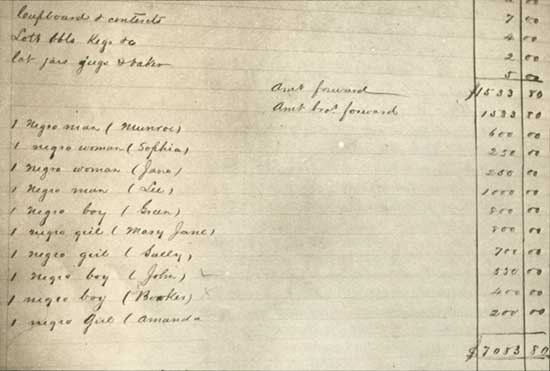 Cupboard & contents 7 00
Lot bbls Kegs &c 4 00
lot jars jugs & 2 00
5 00
Amt forward $1533 80
Amt brot forward 1533 80
1 Negro man (Munroe) 600 00
1 negro woman (Sophia) 250 00
1 Negro woman (Jane) 250 00
1 Negro man (Lee) 1000 00
1 Negro boy (Green) 800 00
1 negro girl (Mary Jane) 800 00
1 negro girl (Sally) 700 00
1 Negro boy (John) 550 00
1 negro boy (Booker) 400 00
1 negro Girl (Amanda 200 00
$7083 80